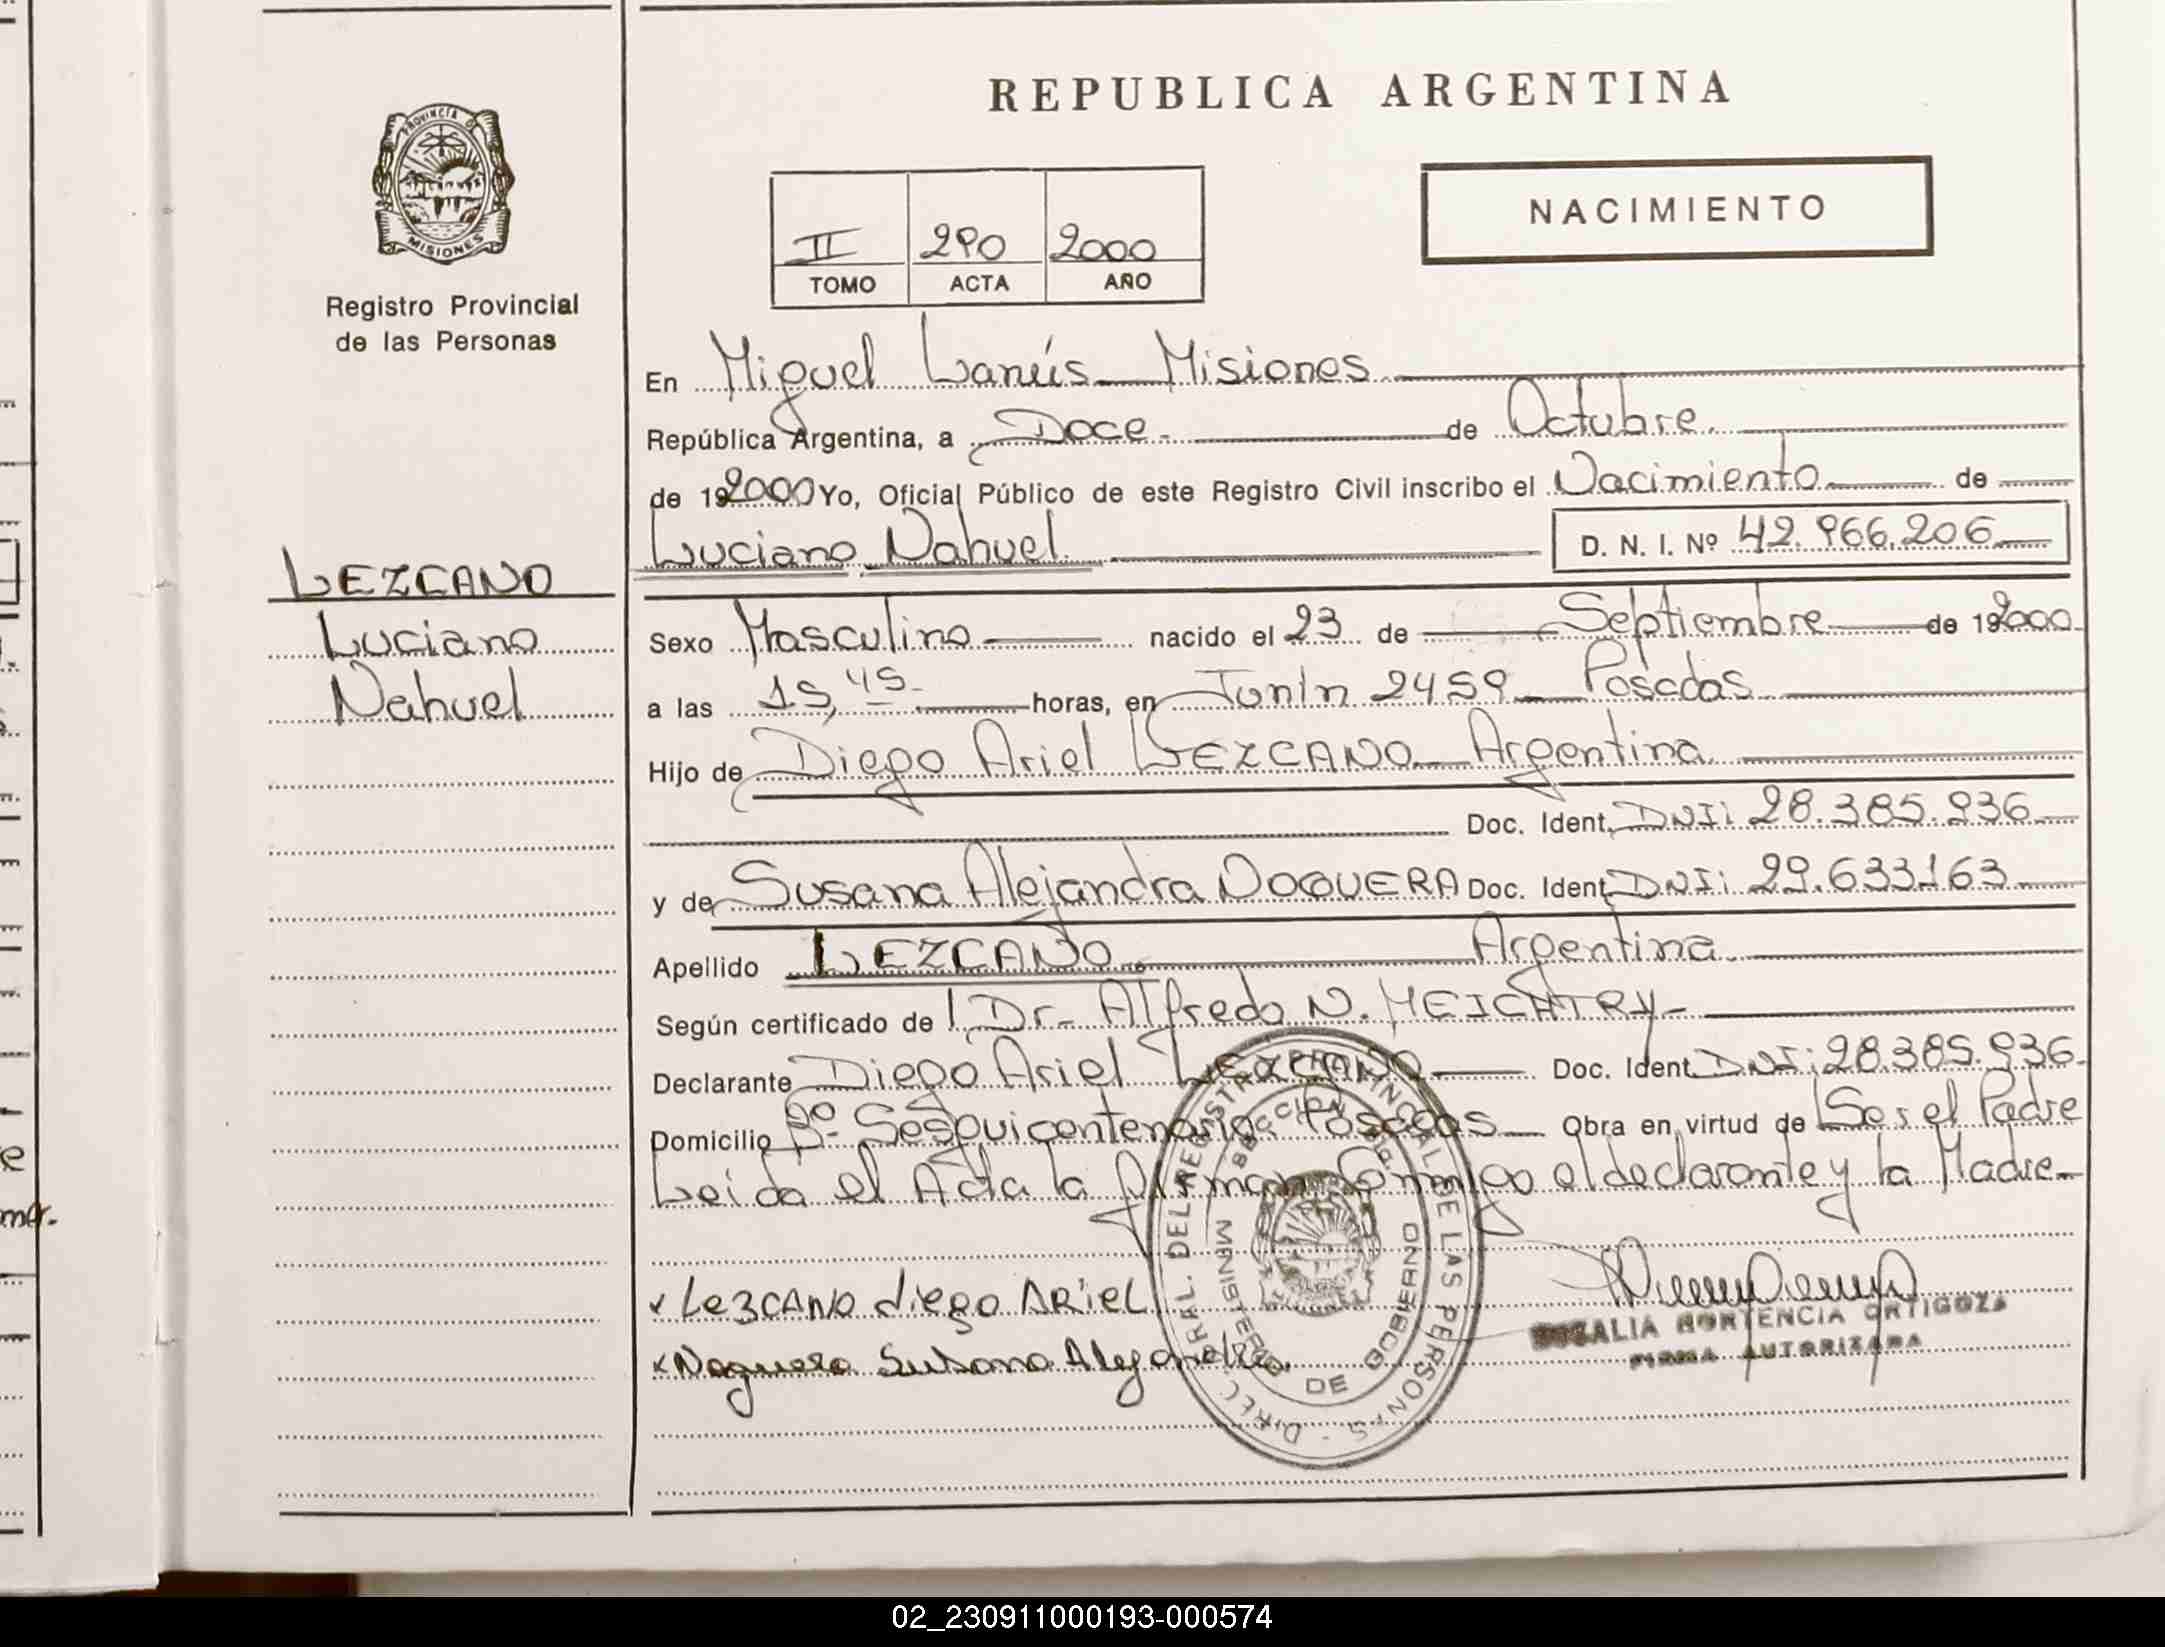 REPUBLICA ARGENTINA
PROVINCIA DE
MISIONES
Registro Provincial
de las Personas
II 290 2000
TOMO ACTA AÑO
NACIMIENTO
En Miguel Lanús Misiones
República Argentina, a Doce de Octubre
de 2000 Yo, Oficial Público de este Registro Civil inscribo el Nacimiento de
Luciano Nahuel D. N. I. Nº 42.966.206
LEZCANO
Luciano
Nahuel
Sexo Masculino nacido el 23 de Septiembre de 2000
a las 15,45 horas, en Junín 2459 Posadas
Hijo de Diego Ariel LEZCANO Argentina
Doc. Ident. DNI: 28.385.936
y de Susana Alejandra NOGUERA Doc. Ident. DNI: 29.633163
Apellido LEZCANO Argentina
Según certificado de Dr. Alfredo N. MEICHTRY
Declarante Diego Ariel LEZCANO Doc. Ident. DNI: 28.385.936
Domicilio Bº Sesquicentenario Posadas Obra en virtud de Ser el Padre
Leida el Acta la Firman Conmigo el declarante y la Madre
Lezcano diego Ariel
Noguera Susana Alejandra
ROSALIA HORTENCIA ORTIGOZA
FIRMA AUTORIZADA
DEL REGISTRO PROVINCIAL DE LAS PERSONAS
MINISTERIO DE GOBIERNO
02_230911000193-000574